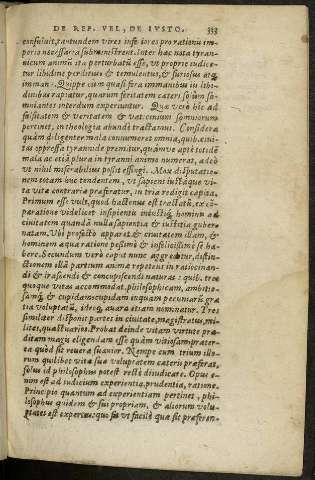 DE REP. VEL, DE IVSTO. 333
exsiluit, tantundem vires inferiores pro rationũ im-
perio necessaria subministrent. Inter hæc nota tyran-
nicum animũ ita perturbatũ esse, vt proprie iudice-
tur libidine perditus & temulentus, & furiosus atq;
imman Quippe cum quasi fera immanibus in libi-
dinibus raptatur, quarum feritatem cæteri solùm som-
niantes interdum experiuntur. Quæ verò hîc ad
falsitatem & veritatem & vaticinium somniorum
pertinet, in theologia abundè tractauimus. Considera
quàm diligenter mala connumeret omnia, quib. ciui-
tas oppressa tyrannide premitur, quàmve aptè totidẽ
mala ac etiã plura in tyranni animo numerat, adeò
vt nihil miserabilius possit effingi. Mox disputatio-
nem totam huc tendentem, vt sapiens iustáque vi-
ta vitæ contrariæ præferatur, in tria redigit capita.
Primum esse vult, quod hactenus est tractatũ, ex cõ-
paratione videlicet insipientis iniustiq; hominis ad
ciuitatem quandã nulla sapientia & iustitia guber-
natam. Vbi profectò apparet & ciuitatem illam, &
hominem æqua ratione pessimè & infelicissimè se ha-
bere. Secundum verò caput nunc aggreditur, distin-
ctionem illã partium animæ repetens in ratiocinan-
di & irascendi & concupiscendi naturas: quib. tres
quoque vitas accommodat, philosophicam, ambitio-
samq; & cupidam: cupidam inquam pecuniarũ gra-
tia voluptatũ, ideoq; auara etiam nominatur. Tres
similiter disponit partes in ciuitate, magistratus, mi-
lites, quæstuarios. Probat deinde vitam virtute præ-
ditam magis eligendam esse quàm vitiosam præter-
ea quòd sit reuera suauior. Nempe cum trium illo-
rum quilibet vitæ suæ voluptatem cæteris præferat,
solus id philosophus potest rectè diiudicare. Opus e-
nim est ad iudicium experientia, prudentia, ratione.
Principio quantum ad experientiam pertinet, phi-
losophus quidem & sui propriam, & aliorum volu-
ptates est expertus: quo sit vt facilè quæ sit præferen-